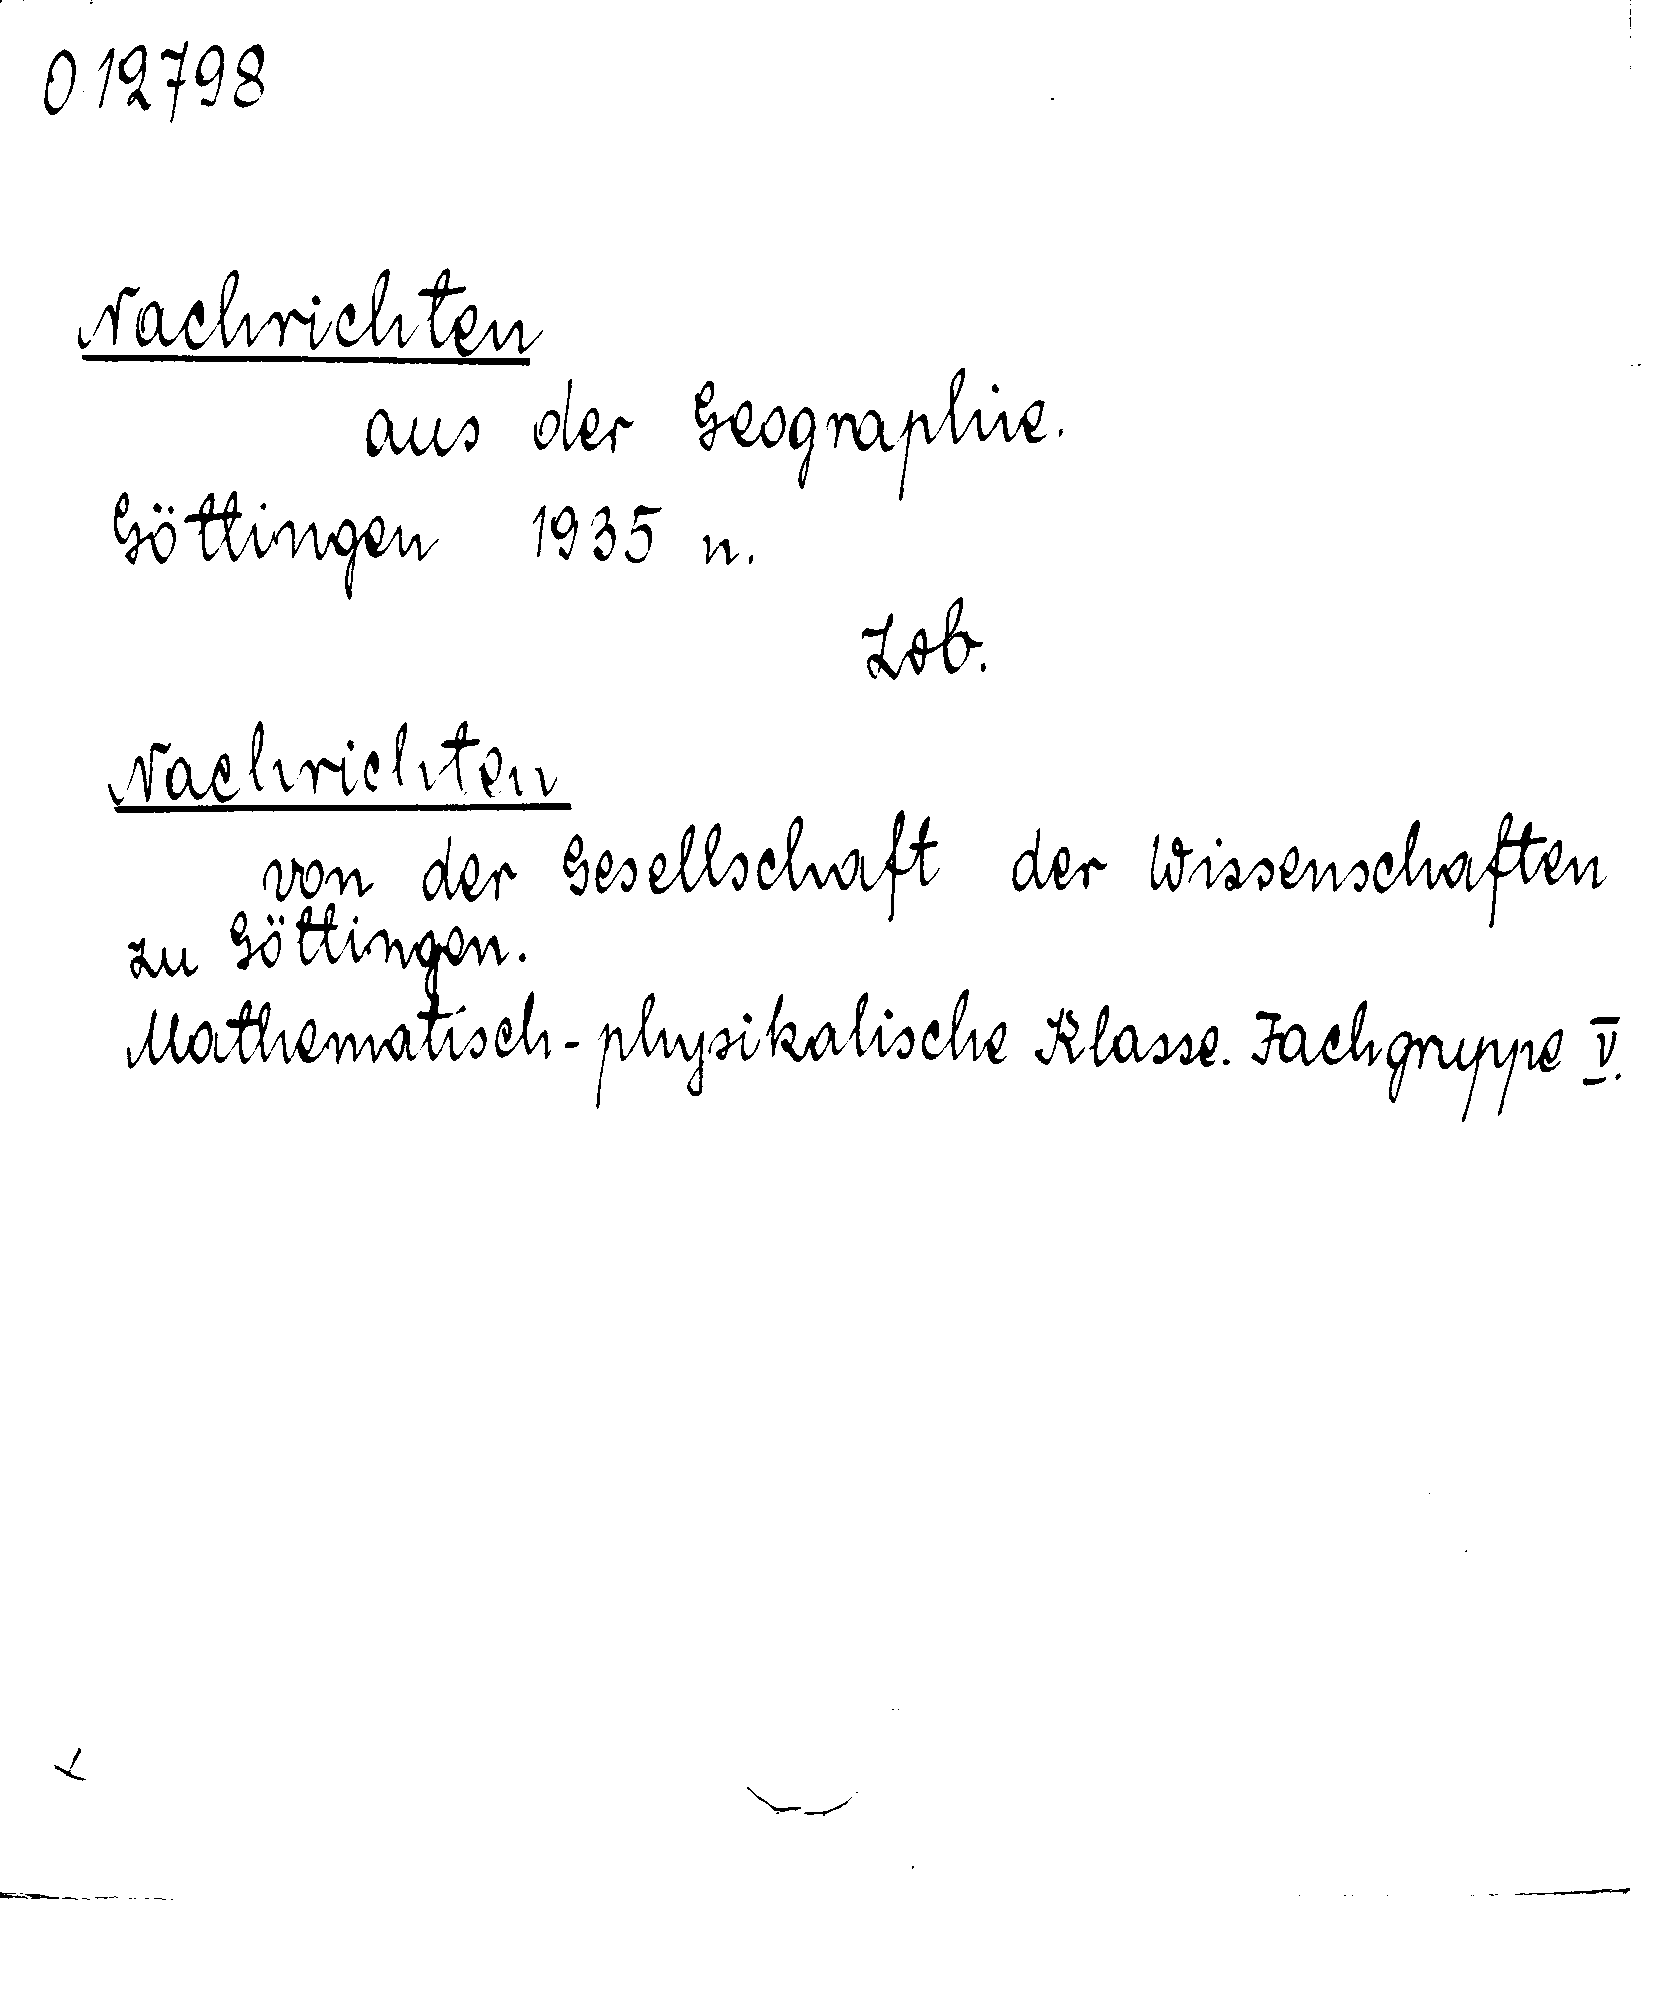 012798
Nachrichten
aus der Geographie.
Göttingen 1935 n.
Zob.
Nachrichten
von der Gesellschaft der Wissenschaften
zu Göttingen.
Mathematisch-physikalische Klasse. Fachgruppe V.